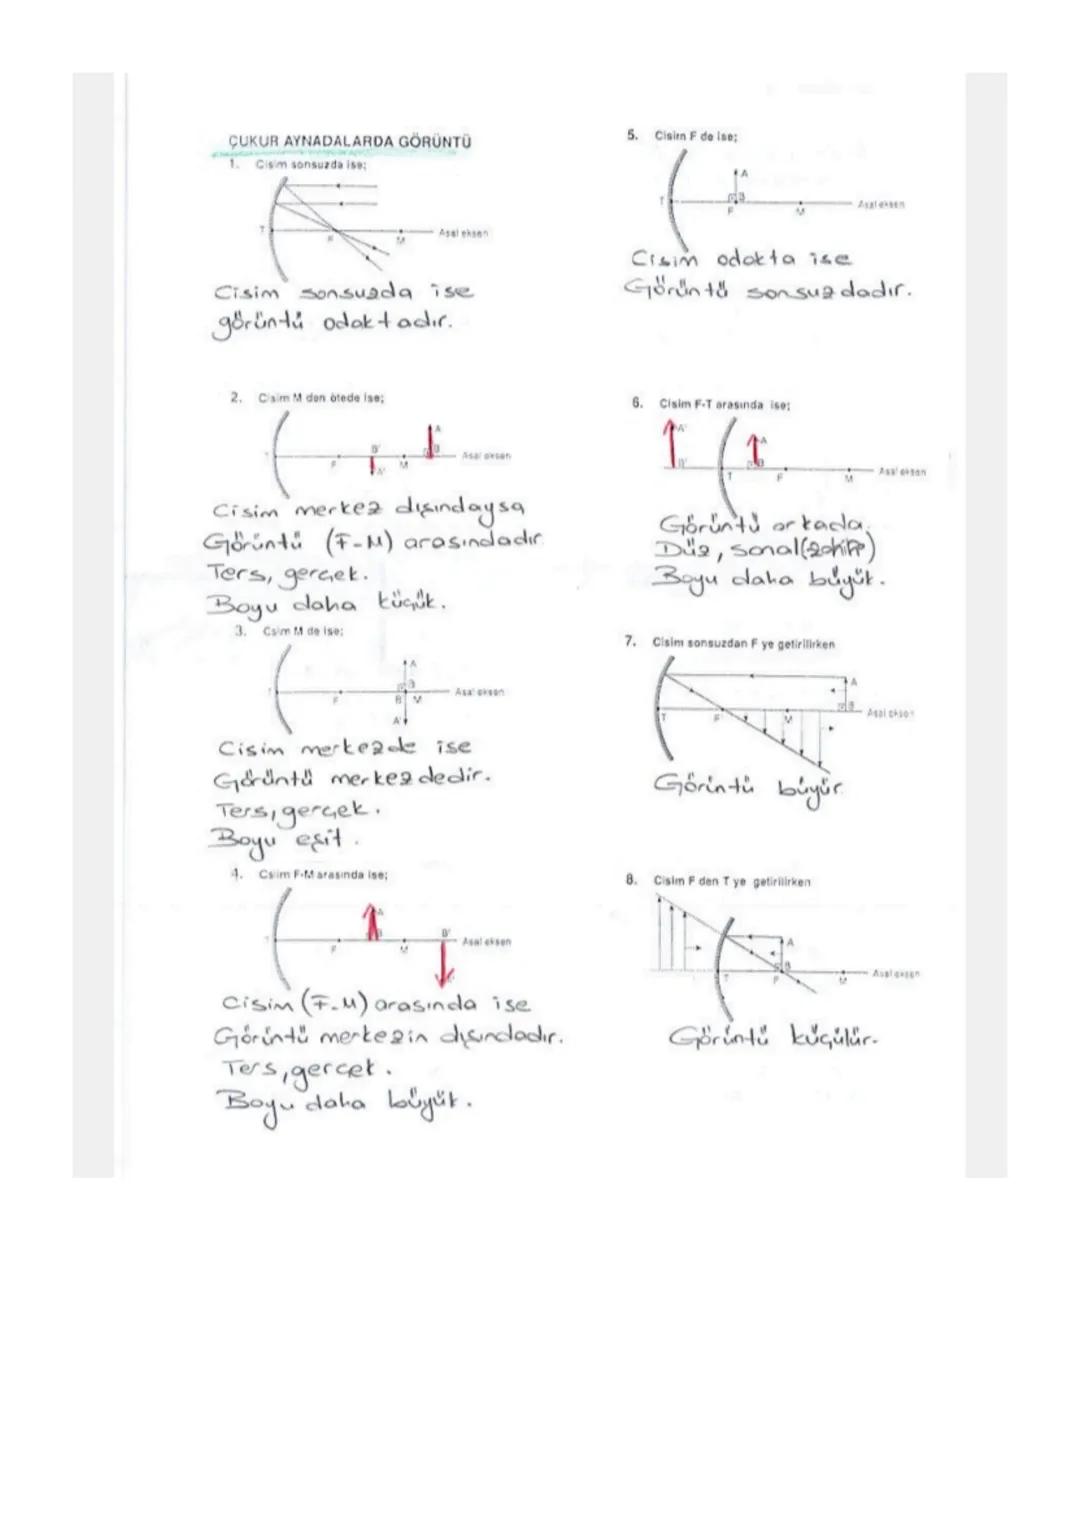 ÇUKUR AYNADALARDA GÖRÜNTÜ
1. Cisim sonsuzda ise;
T F M Asal eksen
Cisim sonsuzda ise
görüntü odaktadır.
2. Cisim M den ötede ise;
A
B' B
T F M Asal eksen
A'
Cisim merkez dışındaysa
Görüntü (F-M) arasındadır
Ters, gerçek.
Boyu daha küçük.
3. Csim M de ise;
A
B
T F B' M Asal eksen
A'
Cisim merkezde ise
Görüntü merkezdedir.
Ters, gerçek.
Boyu eşit.
4. Csim F-M arasında ise;
A
B B'
T F M Asal eksen
Cisim (F-M) arasında ise
Görüntü merkezin dışındadır.
Ters, gerçek.
Boyu daha büyük.
5. Cisim F de ise;
A
B
T F M Asal eksen
Cisim odakta ise
Görüntü sonsuzdadır.
6. Cisim F-T arasında ise;
A' A
B' B
T F M Asal eksen
Görüntü arkada.
Düz, sanal
Boyu daha büyük.
7. Cisim sonsuzdan F ye getirilirken
A
B
T F M Asal eksen
Görüntü büyür.
8. Cisim F den T ye getirilirken
A
B
T F M Asal eksen
Görüntü küçülür.